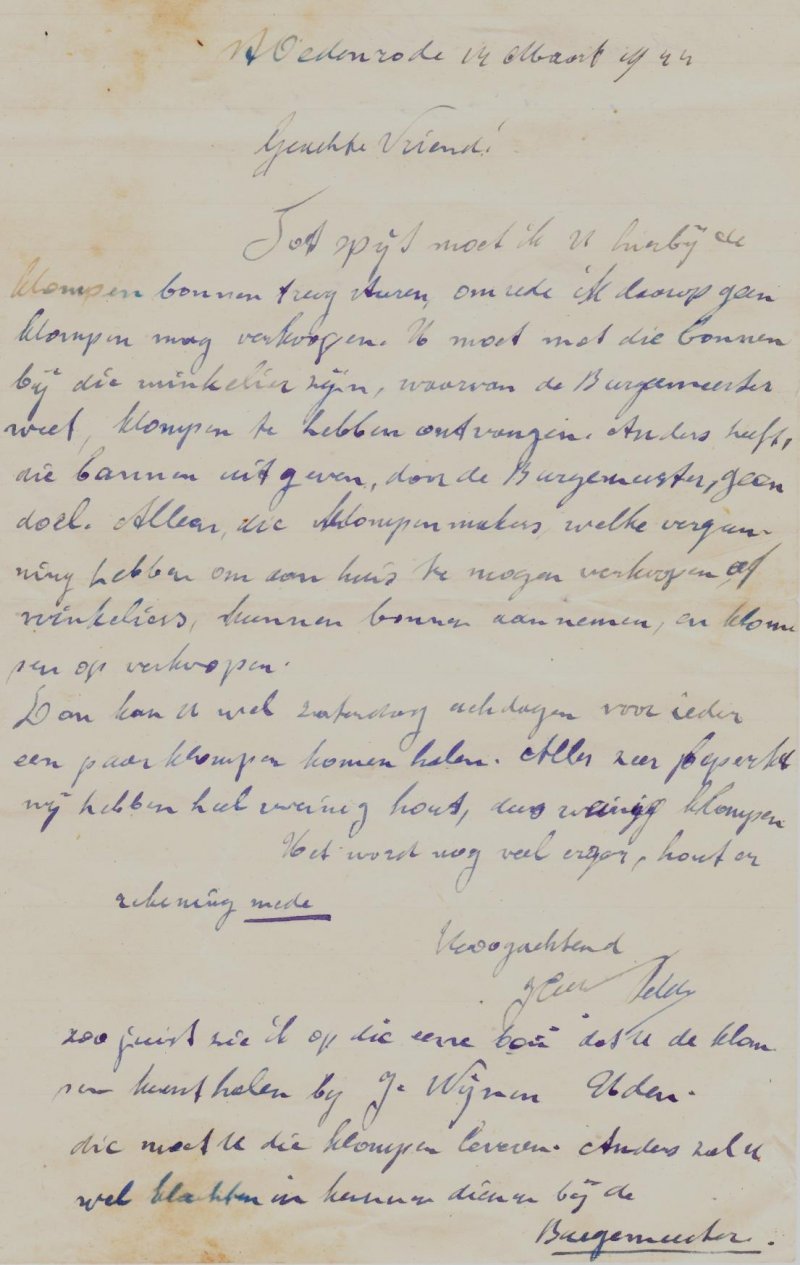 St Oedenrode 14 Maart 1944
Geachte Vriend!
Tot spijt moet ik U hierbij de
klompen bonnen trug sturen, omrede ik daarop geen
klompen mag verkoopen. U moet met die bonnen
bij die winkelier zijn, waarvan de Burgemeester
weet, klompen te hebben ontvangen. Anders heeft,
die bonnen uitgeven, door de Burgemeester, geen
doel. Alleen, die klompenmakers welke vergun-
ning hebben om aan huis te mogen verkoopen of
winkeliers, kunnen bonnen aannemen, en klom
pen op verkoopen.
Dan kan U wel zaterdag achdagen voor ieder
een paar klompen komen halen. Alles zeer beperkt
wij hebben heel weinig hout, dus weinig klompen
Het word nog veel erger, hout er
rekening mede
Hoogachtend
zoo juist zie ik op die eene bon dat U de klom
pen kunt halen bij J. Wijnen Uden.
die moet U die klompen leveren. Anders zal U
wel klachten in kunnen dienen bij de
Burgemeester.